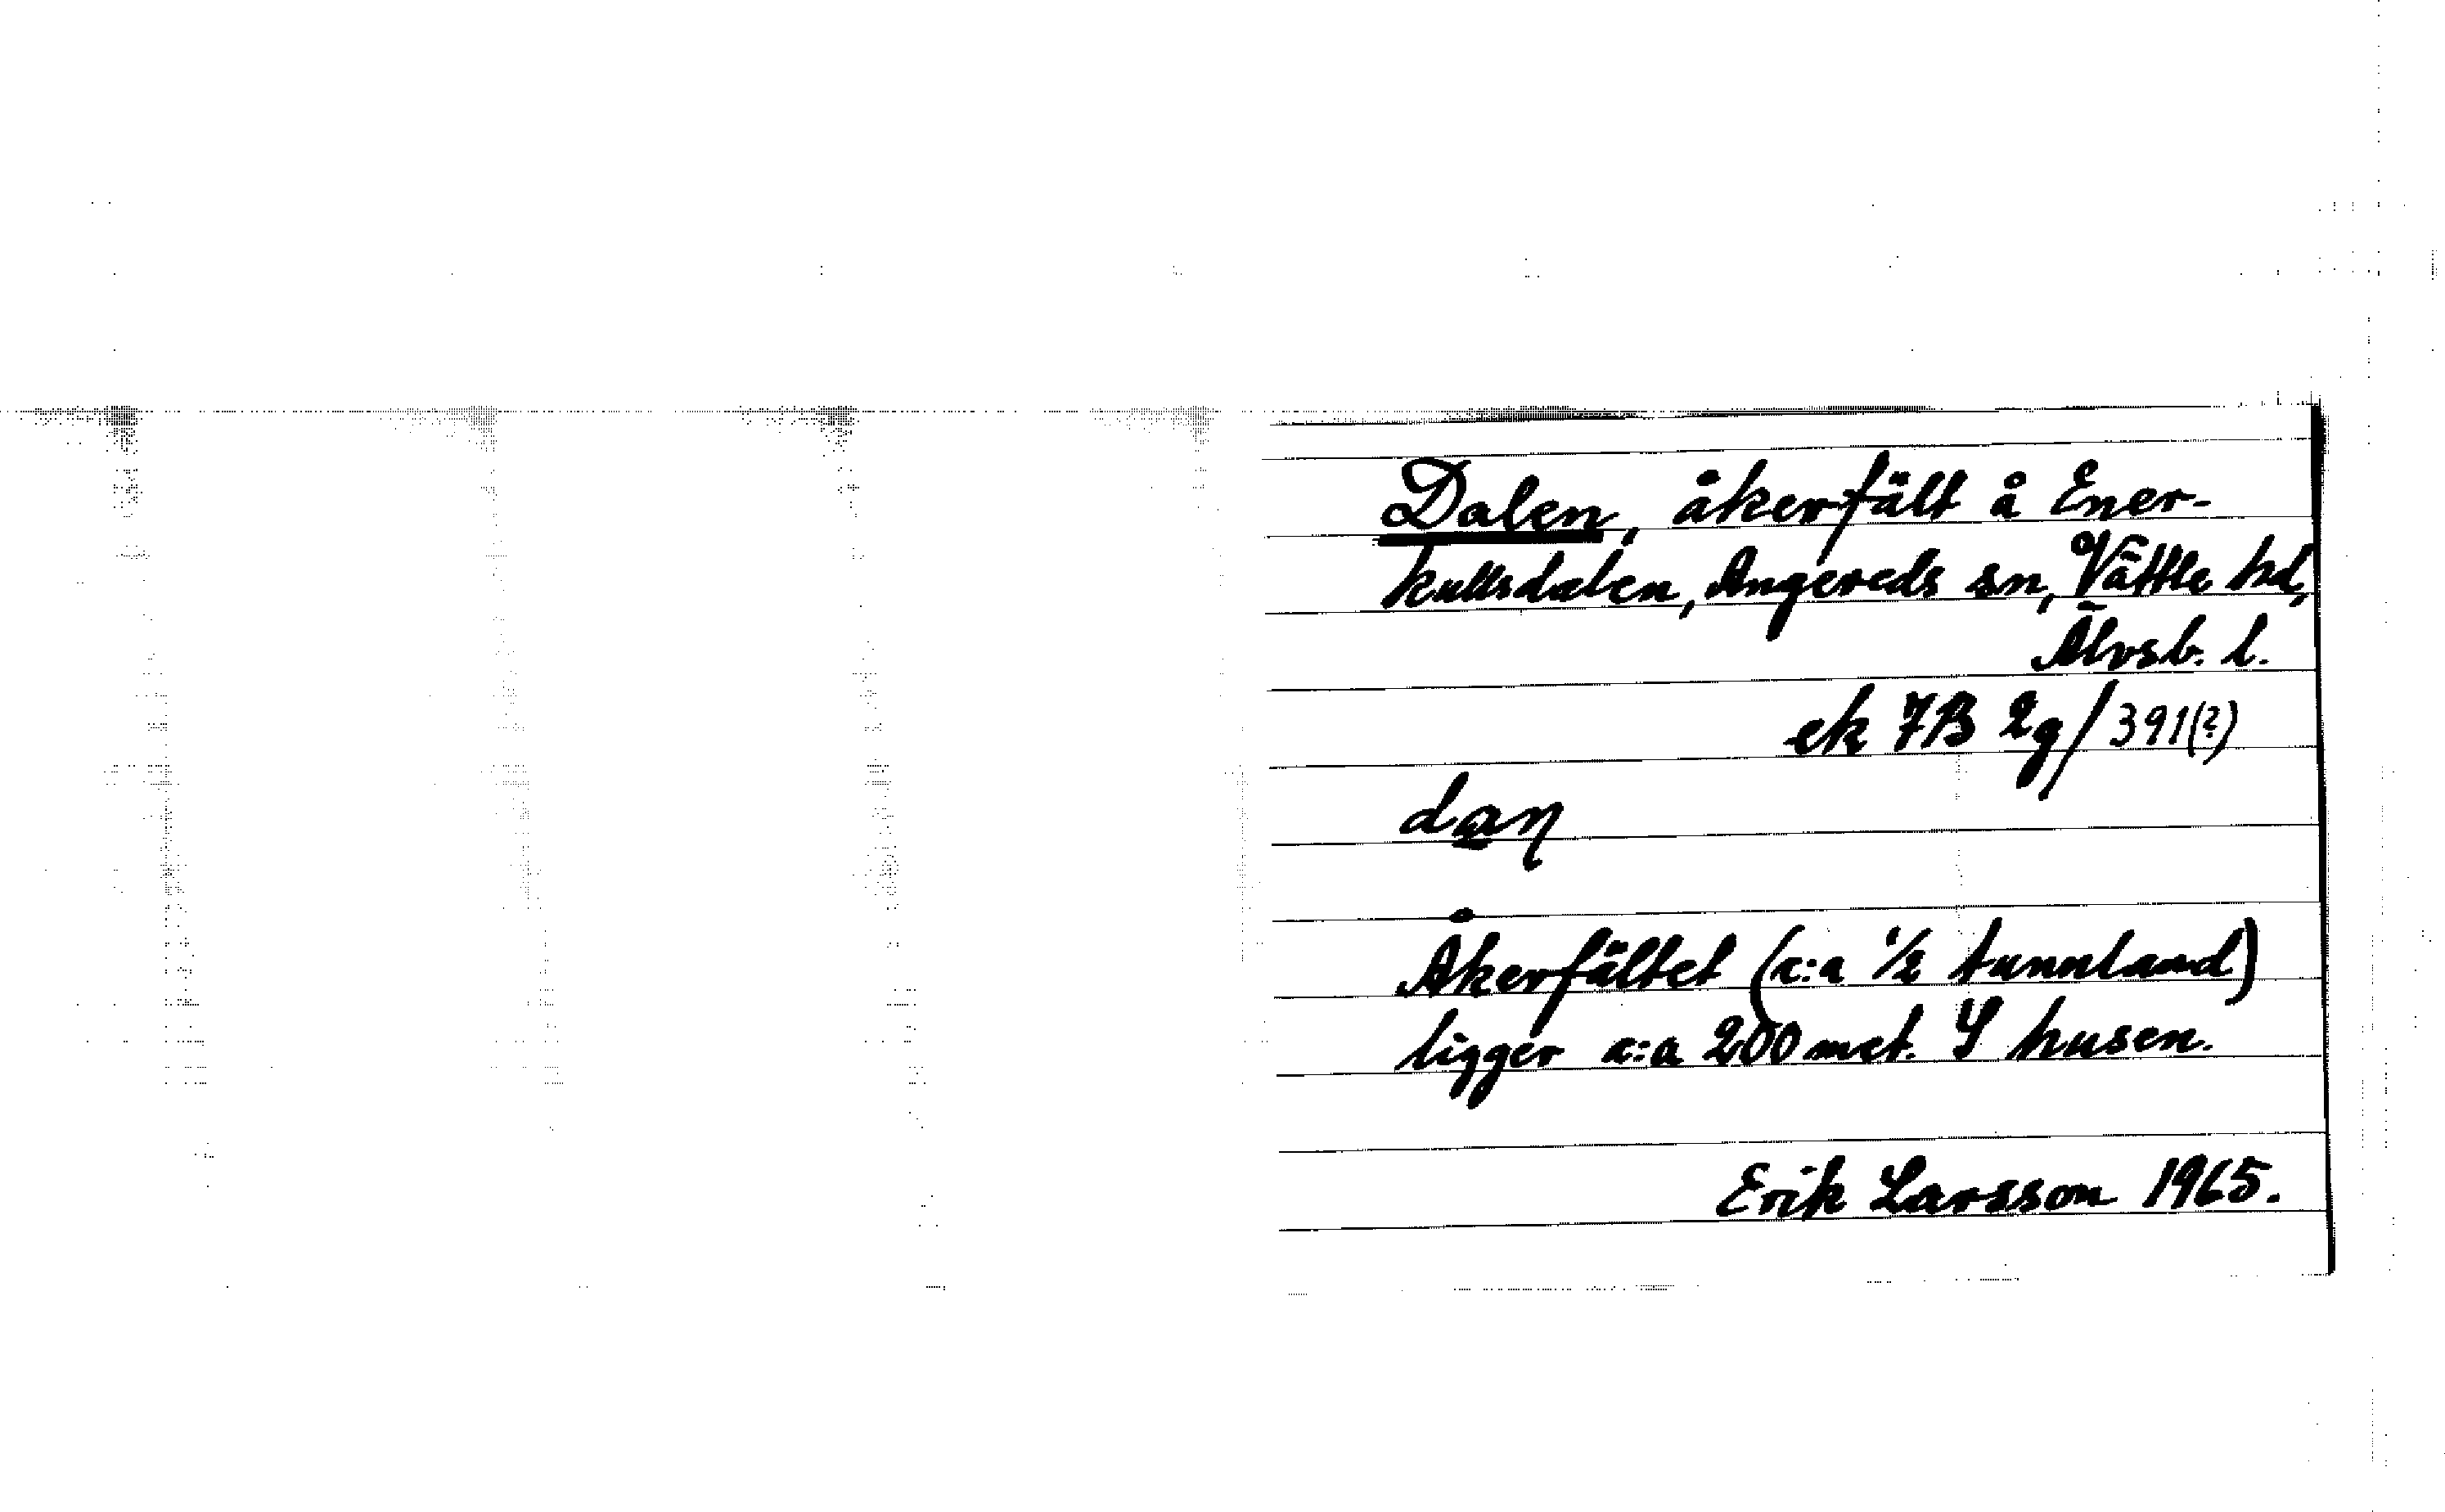 Dalen, åkerfält å Ener-
kullsdalen, Angereds sn, Vättle hd,
Älvsb. l.
ek 7B 2g/391(?)
daṇ
Åkerfältet (c:a 1/2 tunnland)
ligger c:a 200 met. S husen.
Erik Larsson 1965.